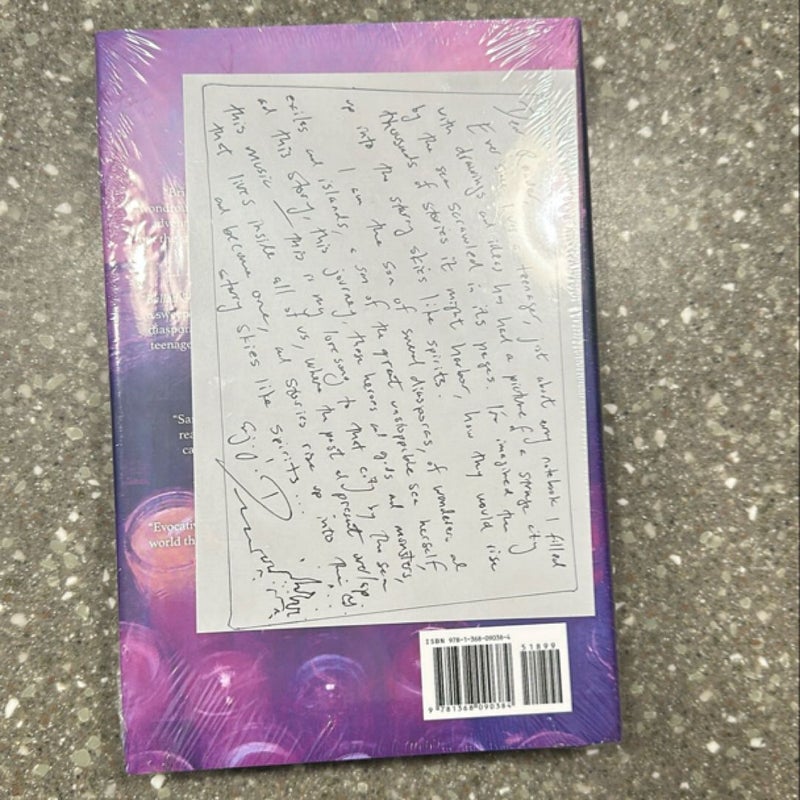 Dear Reader,
Ever since I was a teenager, just about every notebook I filled
with drawings and ideas has had a picture of a strange city
by the sea scrawled in its pages. I've imagined the
thousands of stories it might harbor, how they would rise
up into the starry skies like spirits.
I am the son of several diasporas, of wonderer and
exiles and islands, a son of the great unstoppable sea herself
and this story, this journey, these heroes and gods and monsters,
this music — this is my lovesong to that city by the sea
that lives inside all of us, where the past and present overlap
and become one, and stories rise up into the
story skies like spirits....
"Bri
wondro
adven
the
Ballad &
sweep
diaspor
teenage
"Sa
rea
ca
"Evocati
world th
ISBN 978-1-368-09038-4
51899
9 781368 090384